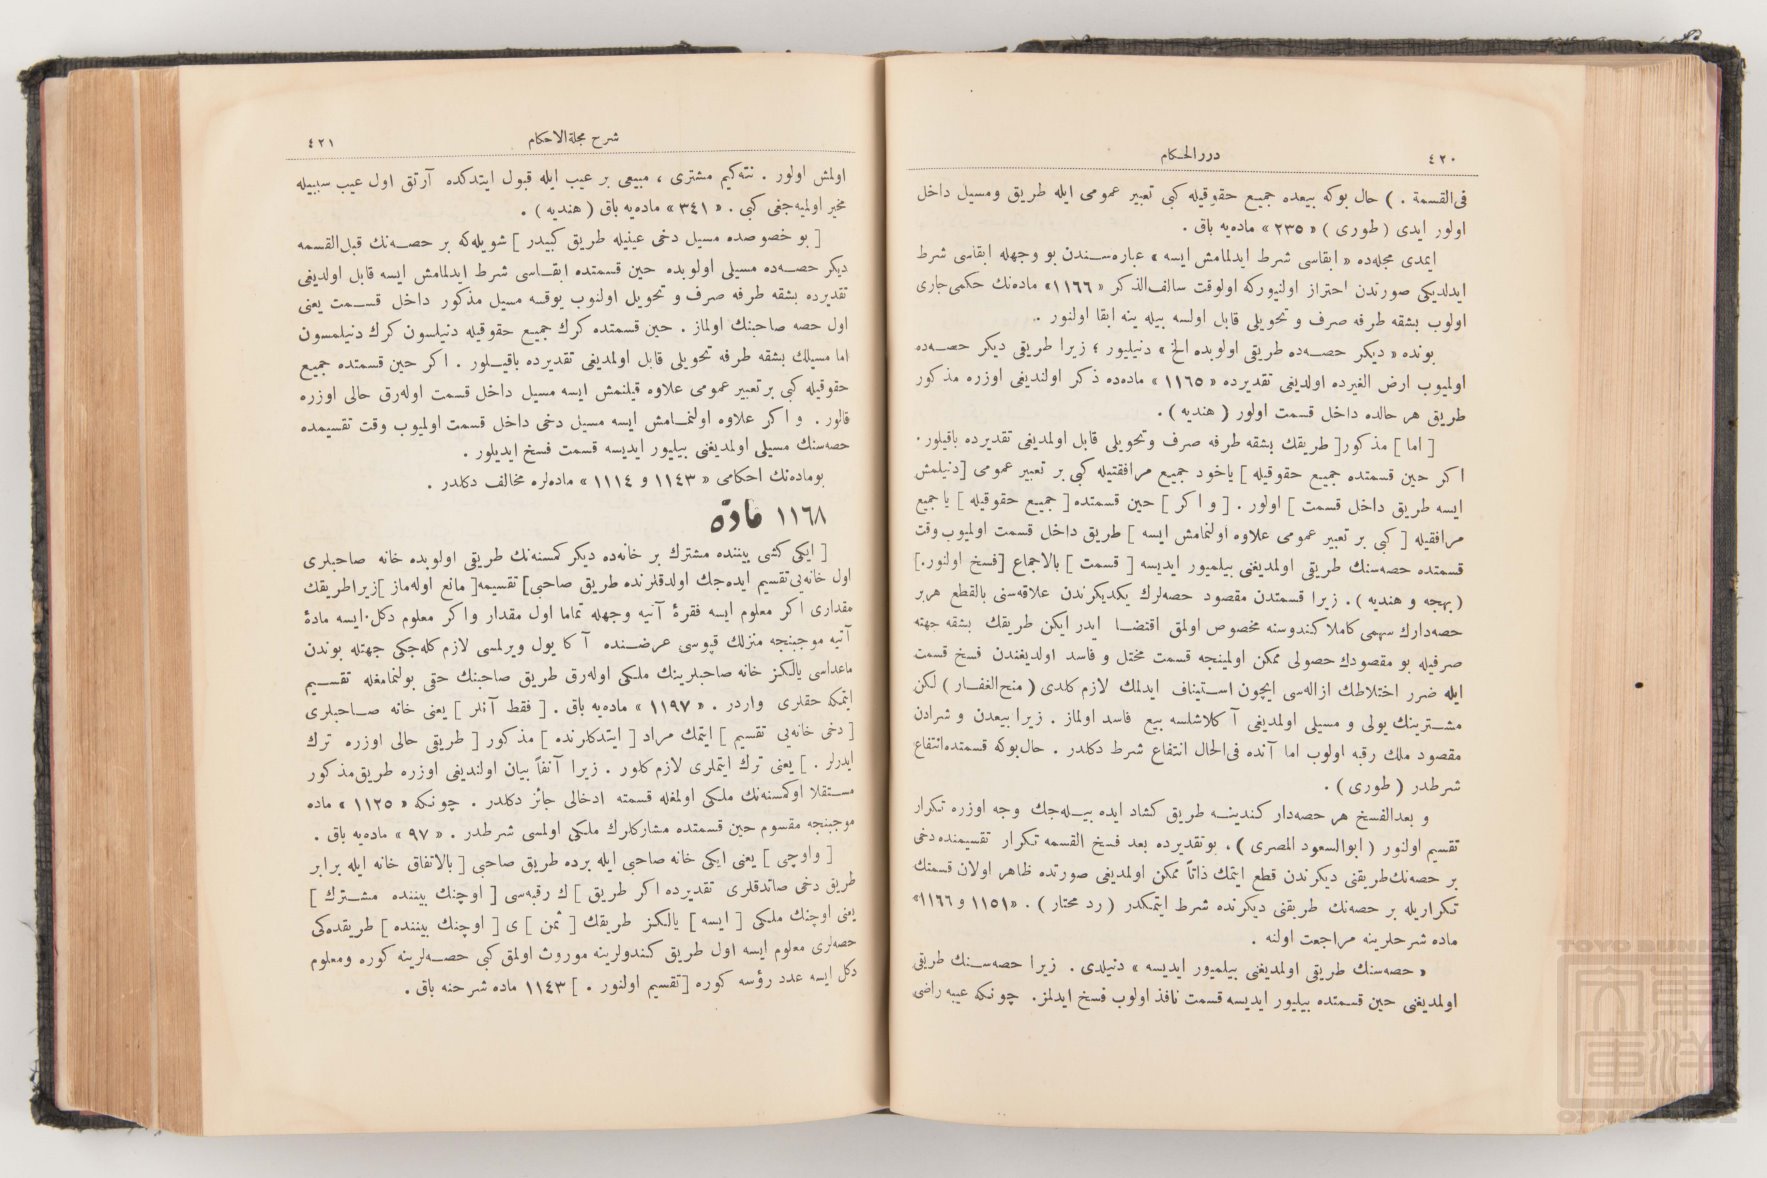 ٤٢٠
دررالحكام
فى‌القسمة . ) حال بوكه بيعده جميع حقوقيله كبى تعبير عمومى ايله طريق ومسيل داخل
اولور ايدى ( طورى ) « ٢٣٥ » ماده‌يه باق .
ايمدى مجله‌ده « ابقاسى شرط ايدلمامش ايسه » عباره‌سندن بو وجهله ابقاسى شرط
ايدلديكى صورتدن احتراز اولنيوركه اولوقت سالف‌الذكر « ١١٦٦» ماده‌نك حكمى جارى
اولوب بشقه طرفه صرف و تحويلى قابل اولسه بيله ينه ابقا اولنور .
بونده « ديكر حصه‌ده طريقى اولوبده الخ » دنيليور ؛ زيرا طريقى ديكر حصه‌ده
اولميوب ارض الغيرده اولديغى تقديرده « ١١٦٥ » ماده‌ده ذكر اولنديغى اوزره مذكور
طريق هر حالده داخل قسمت اولور ( هنديه ) .
[ اما ] مذكور[ طريقك بشقه طرفه صرف وتحويلى قابل اولمديغى تقديرده باقيلور .
اكر حين قسمتده جميع حقوقيله ] ياخود جميع مرافقتيله كبى بر تعبير عمومى [دنيلمش
ايسه طريق داخل قسمت ] اولور . [ و اكر ] حين قسمتده[ جميع حقوقيله ] يا جميع
مرافقيله [ كبى بر تعبير عمومى علاوه اولنمامش ايسه ] طريق داخل قسمت اولميوب وقت
قسمتده حصه‌سنك طريقى اولمديغنى بيلميور ايديسه [ قسمت ] بالاجماع [فسخ اولنور.]
(بهجه و هنديه ) . زيرا قسمتدن مقصود حصه‌لرك يكديكرندن علاقه‌سنى بالقطع هربر
حصه‌دارك سهمى كاملا كندوسنه مخصوص اولمق اقتضا ايدر ايكن طريقك بشقه جهته
صرفيله بو مقصودك حصولى ممكن اولمينجه قسمت مختل و فاسد اولديغندن فسخ قسمت
ايله ضرر اختلاطك ازاله‌سى ايچون استيناف ايدلمك لازم كلدى ( منح‌الغفار ) لكن
مشترينك يولى و مسيلى اولمديغى آكلاشلسه بيع فاسد اولماز . زيرا بيعدن و شرادن
مقصود ملك رقبه اولوب اما آنده فى‌الحال انتفاع شرط دكلدر . حال‌بوكه قسمتده انتفاع
شرطدر ( طورى ) .
و بعدالفسخ هر حصه‌دار كندينه طريق كشاد ايده بيله‌جك وجه اوزره تكرار
تقسيم اولنور ( ابوالسعود المصرى ) ، بوتقديرده بعد فسخ القسمه تكرار تقسيمنده دخى
بر حصه‌نك‌طريقنى ديكرندن قطع ايتمك ذاتاً ممكن اولمديغى صورتده ظاهر اولان قسمتك
تكراريله بر حصه‌نك طريقنى ديكرنده شرط ايتمكدر ( رد محتار ) . «١١٥١ و ١١٦٦»
ماده شرحلرينه مراجعت اولنه .
« حصه‌سنك طريقى اولمديغنى بيلميور ايديسه » دنيلدى . زيرا حصه‌سنك طريقى
اولمديغنى حين قسمتده بيليور ايديسه قسمت نافذ اولوب فسخ ايدلمز. چونكه عيبه راضى
٤٢١
شرح مجلةالاحكام
اولمش اولور . نته‌كيم مشترى ، مبيعى بر عيب ايله قبول ايتدكده آرتق اول عيب سببيله
مخير اولميه‌جغى كبى . « ٣٤١ » ماده‌يه باق ( هنديه ) .
[ بو خصوصده مسيل دخى عينيله طريق كبيدر ] شويله‌كه بر حصه‌نك قبل‌القسمه
ديكر حصه‌ده مسيلى اولوبده حين قسمتده ابقاسى شرط ايدلمامش ايسه قابل اولديغى
تقديرده بشقه طرفه صرف و تحويل اولنوب يوقسه مسيل مذكور داخل قسمت يعنى
اول حصه صاحبنك اولماز . حين قسمتده كرك جميع حقوقيله دنيلسون كرك دنيلمسون
اما مسيلك بشقه طرفه تحويلى قابل اولمديغى تقديرده باقيلور . اكر حين قسمتده جميع
حقوقيله كبى بر تعبير عمومى علاوه قيلنمش ايسه مسيل داخل قسمت اوله‌رق حالى اوزره
قالور . و اكر علاوه اولنمامش ايسه مسيل دخى داخل قسمت اولميوب وقت تقسيمده
حصه‌سنك مسيلى اولمديغنى بيليور ايديسه قسمت فسخ ايديلور .
بوماده‌نك احكامى « ١١٤٣ و ١١١٤ » ماده‌لره مخالف دكلدر .
١١٦٨ مادّه
[ ايكى كشى بيننده مشترك بر خانه‌ده ديكر كمسنه‌نك طريقى اولوبده خانه صاحبلرى
اول خانه‌يى تقسيم ايده‌جك اولدقلرنده طريق صاحبى] تقسيمه[ مانع اوله‌ماز ]زيرا طريقك
مقدارى اكر معلوم ايسه فقرۀ آتيه وجهله تماما اول مقدار واكر معلوم دكل ايسه مادۀ
آتيه موجبنجه منزلك قپوسى عرضنده آكا يول ويرلمسى لازم كله‌جكى جهتله بوندن
ماعداسى يالكز خانه صاحبلرينك ملكى اوله‌رق طريق صاحبنك حقى بولنمامغله تقسيم
ايتمكه حقلرى واردر . « ١١٩٧ » ماده‌يه باق . [ فقط آنلر ] يعنى خانه صاحبلرى
[ دخى خانه‌يى تقسيم ] ايتمك مراد [ ايتدكلرنده ] مذكور [ طريقى حالى اوزره ترك
ايدرلر . ] يعنى ترك ايتملرى لازم كلور . زيرا آنفاً بيان اولنديغى اوزره طريق مذكور
مستقلا اوكمسنه‌نك ملكى اولمغله قسمته ادخالى جائز دكلدر . چونكه « ١١٢٥ » ماده
موجبنجه مقسوم حين قسمتده مشاركلرك ملكى اولمسى شرطدر . « ٩٧ » ماده‌يه باق .
[ واوچى ] يعنى ايكى خانه صاحبى ايله برده طريق صاحبى [ بالاتفاق خانه ايله برابر
طريق دخى صاتدقلرى تقديرده اكر طريق ]ك رقبه‌سى [ اوچنك بيننده مشترك ]
يعنى اوچنك ملكى [ ايسه ] يالكز طريقك [ ثمن ]ى [ اوچنك بيننده ] طريقده‌كى
حصه‌لرى معلوم ايسه اول طريق كندولرينه موروث اولمق كبى حصه‌لرينه كوره ومعلوم
دكل ايسه عدد رؤسه كوره [تقسيم اولنور . ] ١١٤٣ ماده شرحنه باق .
TOYO BUNKO
東洋文庫